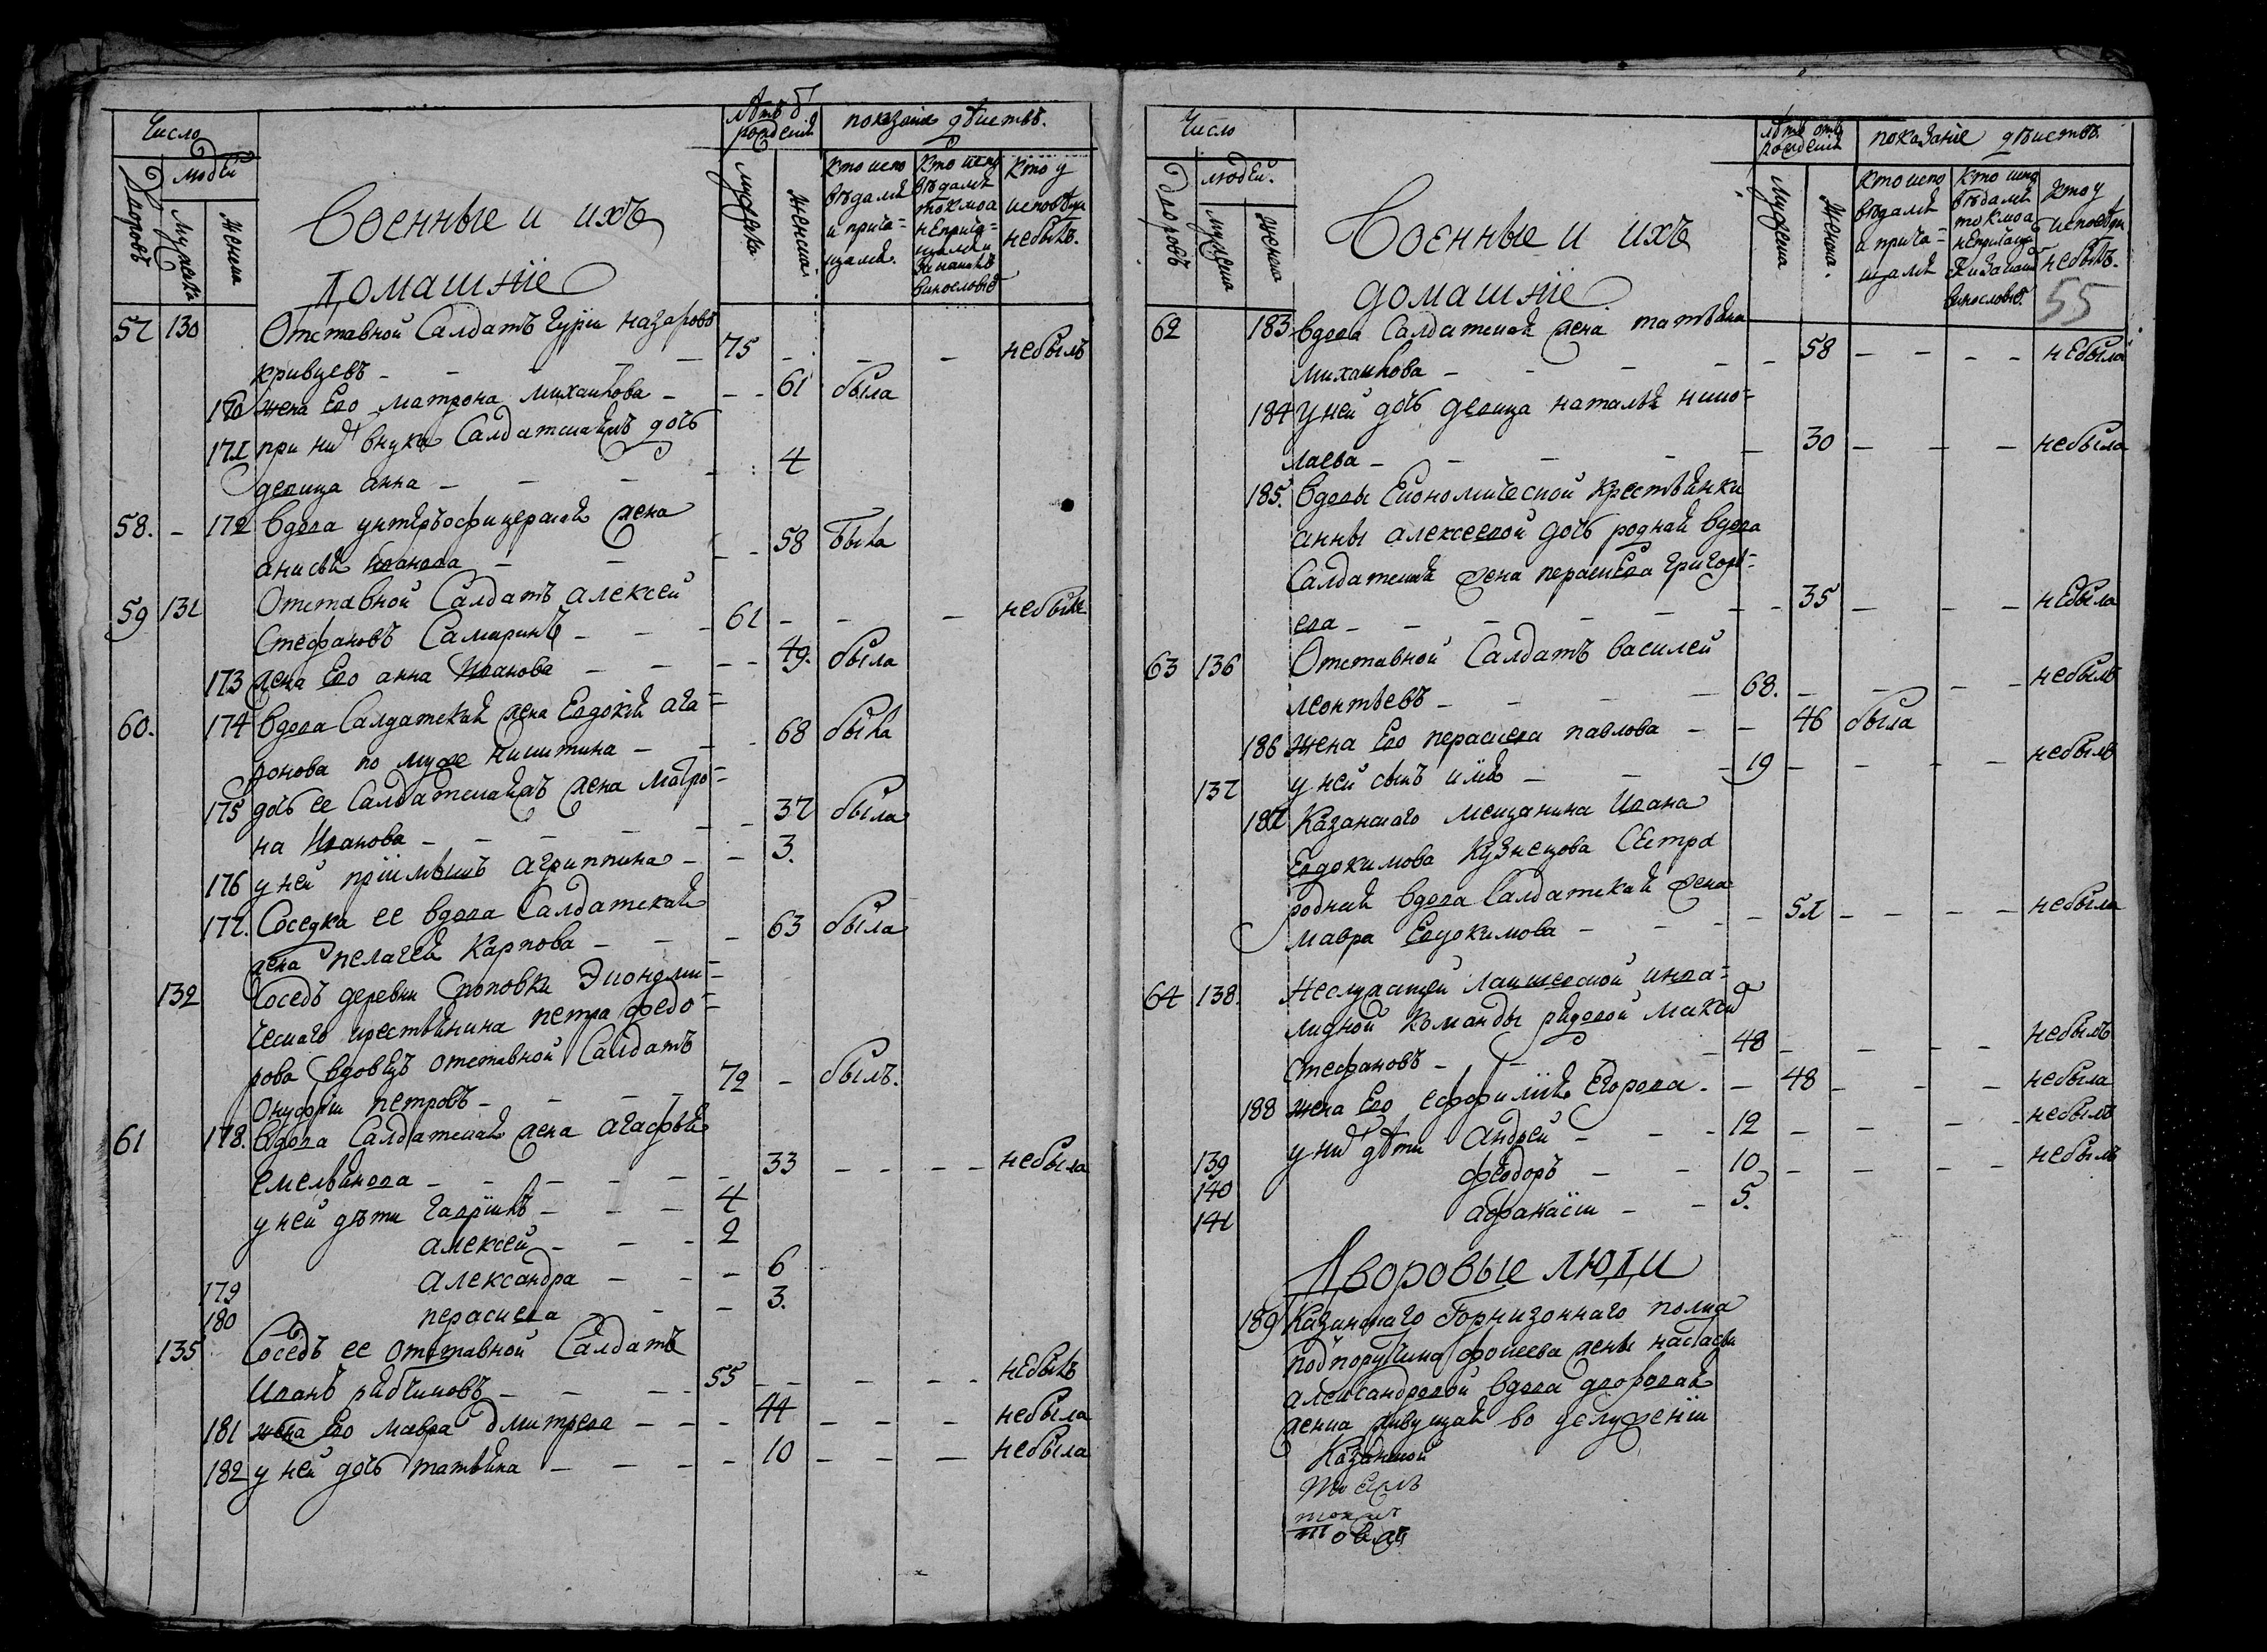 Число
людей
Дворовъ
Мужеска
Женска
Военные и ихъ
Домашнїе
лѣтъ ѿ
рожденїя
мужеска
женска
показанїе дѣйствъ.
кто испо
вѣдался
и приča=
щался.
кто испо
вѣдался
токмо а
не прича=
щался и
за какимъ
винословїемъ
кто у
исповѣди
небылъ.
57 130 Отставной Салдатъ Гурїи назаровъ
кривцевъ – – – 75 – – – небылъ
170 жена Его матрона михаилова – – – 61 была
171 при них внука Салдатская дочь
девица анна – – – 4
58. – 172 Вдова унтеръофицерская жена
анисья Иванова – – – 58 Была
59 131 Отставной Салдатъ алексей
Стефановъ Самаринъ – – – 61 – – – небылъ
173 жена Его анна Иванова – – – 49. была
60. 174 Вдова Салдатская жена Евдокїя ага=
фонова по муже никитина – – – 68 была
175 дочь ее Салдатская жена Матро=
на Иванова – – – 37 была
176 у ней прїимышъ агриппина – – 3.
177. Соседка ее вдова Салдатская
жена пелагея Карпова – – – 63 была
132 Соседъ деревни Экономи=
ческаго крестьянина петра федо=
рова вдовецъ отставной Салдатъ
Онуфрїи петровъ – – – 72 – былъ.
61 178. Вдова Салдатская жена агафья
емельянова – – – 33 – – – – небыла
у ней дѣти Гаврїилъ – – – 4
алексей – – – 2
179 александра – – – 6
180 перасковa – – 3.
135 Соседъ ее отставной Салдатъ
Иванъ рябчиковъ – – – 55 – – – – небылъ
181 жена Его мавра дмитрева – – – 44 – – – небыла
182 у ней дочь татьяна – – – – 10 – – – небыла
Число
людей.
Дворовъ
мужеска
женска
Военные и ихъ
домашнїе
лѣтъ отъ
рожденїя
Мужеска
Женска.
показанїе дѣйствъ.
кто испо
вѣдался
и прича=
щался
кто испо
вѣдался
токмо а
непричащал
ся и за каким
винословїем.
кто у
исповѣди
небылъ.
55
62 183 Вдова Салдатская жена татьяна
михаилова – – – – – 58 – – – – небыла
184 у ней дочь девица наталья нико=
лаева – – – – – 30 – – – небыла
185. Вдовы Економической Крестьянки
анны алексеевой дочь родная вдова
Салдатская жена перасковa григорь=
ева – – – – – 35 – – – небыла
63 136 Отставной Салдатъ василей
леонтьевъ – – – 68. – – – – небылъ
186 жена Его перасковa павлова – – 46 была
137 у ней сынъ илья – – – 19 – – – – небылъ
187 Казанскаго мещанина Ивана
Евдокимова Кузнецова Сестра
родная вдова Салдатская жена
мавра Евдокимова – – – – 51 – – – – небыла
64 138. Неслужащей лаишевской инва=
лидной команды рядовой максим
Стефановъ – – – 48 – – – – небылъ
188 жена Его еффимїя Егорова. – 48 – – – небыла
139 у них дѣти андрей – – – 12 – – – – небылъ
140 феодоръ – – 10 – – – – небылъ
141 афанасїи – – 5.
Дворовые люди
189 Казанскаго Горнизоннаго полка
подпоручика фокеева жены настасьи
александровой вдова дворовая
женка живущая во услуженїи
Казанской